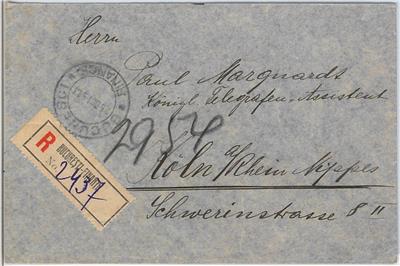 Herrn
Paul Marquardt
Königl. Telegrafen-Assistent
2954
Köln a/Rhein Nippes
Schwerinstrasse 8 II
BUCURESCI
FINANCE
R
No. 2937